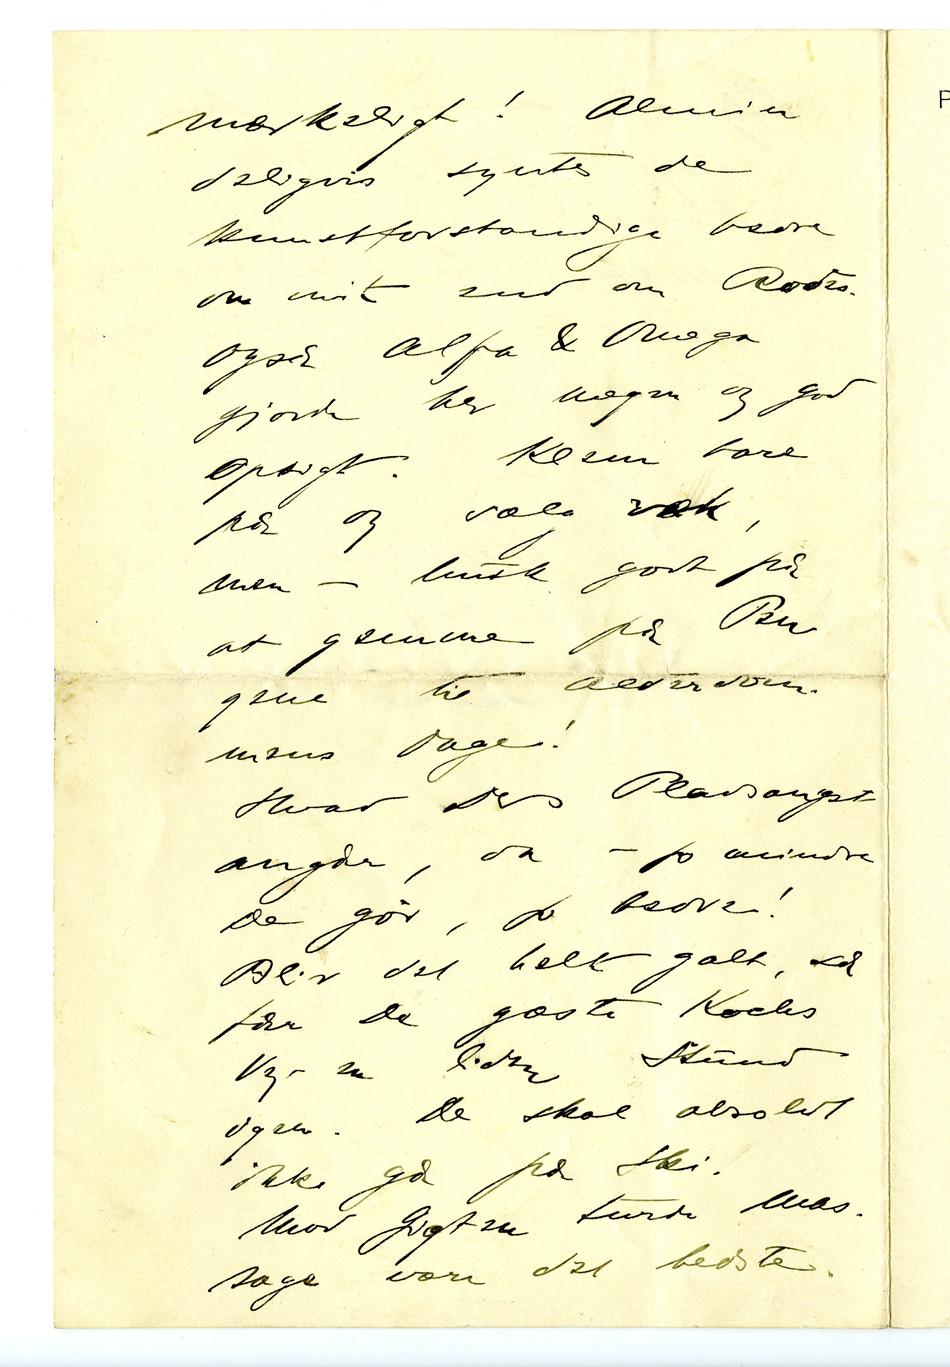 mærkeligt! Almin
deligvis syntes de
kunstforstandige bedre
om mit end om Rodes.
også Alfa & Omega
gjorde her megen og god
Opsigt. Klem bare
på og vælg væk,
men – husk godt på
at gemme på Pen
gene til Alderdom-
mens Dage!
Hvad Deres Pladsangst
angår, da – jo mindre
De gør, jo bedre!
Blir det helt galt, så
får De gæste Kochs
Vej – en liden Stund
igen. De skal absolut
ikke gå på Ski.
Mod Gigten turde Mas-
sage være det bedste.
P